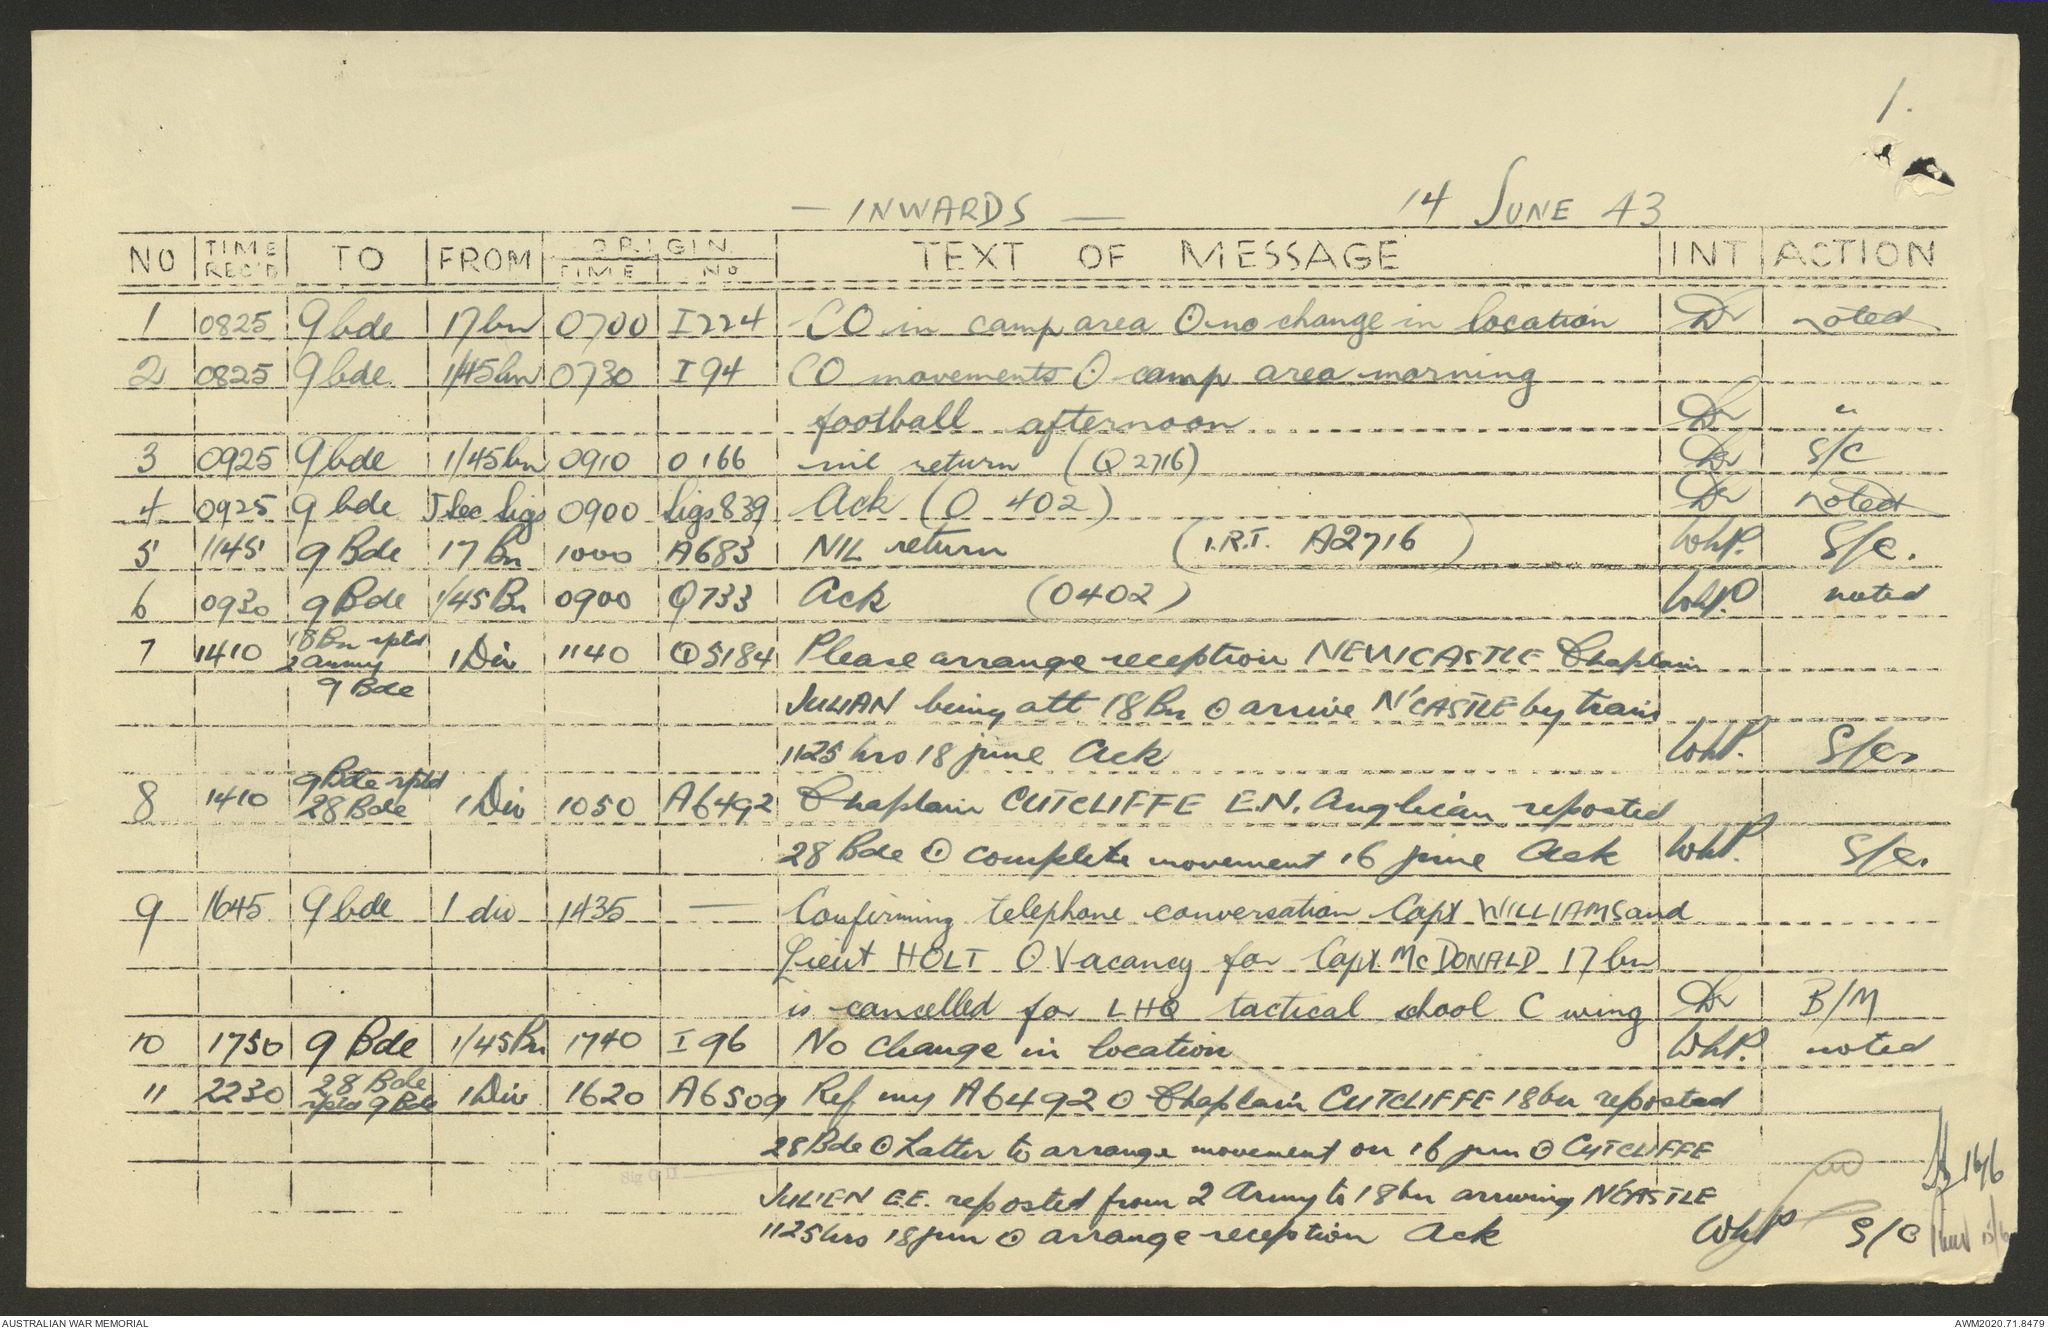 1.
— INWARDS — 14 JUNE 43
NO TIME REC'D TO FROM ORIGIN TIME NO TEXT OF MESSAGE INT ACTION
1 0825 9 bde 17 bn 0700 I224 CO in camp area ⊙ no change in location noted
2 0825 9 bde 1/45 bn 0730 I 94 CO movements ⊙ camp area morning
football afternoon "
3 0925 9 bde 1/45 bn 0910 O 166 nil return (Q 2716) S/C
4 0925 9 bde J Sec Sigs 0900 Sigs 839 Ack (O 402) noted
5 1145 9 Bde 17 Bn 1000 A683 NIL return (I.R.T. A2716) WhP. S/C.
6 0930 9 Bde 1/45 Bn 0900 Q733 Ack (O402) WhP. noted
7 1410 18 Bn rptd 2 Army 9 Bde 1 Div 1140 Q5184 Please arrange reception NEWCASTLE Chaplain
JULIAN being att 18 Bn ⊙ arrive N'CASTLE by train
1125 hrs 18 june Ack WhP. S/C.
8 1410 9 Bde rptd 28 Bde 1 Div 1050 A6492 Chaplain CUTCLIFFE E.N. Anglican reposted
28 Bde ⊙ complete movement 16 june Ack WhP. S/C.
9 1645 9 bde 1 div 1435 — Confirming telephone conversation Capt WILLIAMS and
Lieut HOLT ⊙ Vacancy for Capt McDONALD 17 bn
is cancelled for LHQ tactical school C wing B/M
10 1750 9 Bde 1/45 Bn 1740 I 96 No change in location WhP. noted
11 2230 28 Bde rptd 9 Bde 1 Div 1620 A6509 Ref my A6492 ⊙ Chaplain CUTCLIFFE 18 bn reposted
28 Bde ⊙ Latter to arrange movement on 16 jun ⊙ CUTCLIFFE
JULIEN E.E. reposted from 2 Army to 18 bn arriving N'CASTLE
1125 hrs 18 jun ⊙ arrange reception Ack WhP S/C
16/6
15/6
AUSTRALIAN WAR MEMORIAL
AWM2020.71.8479